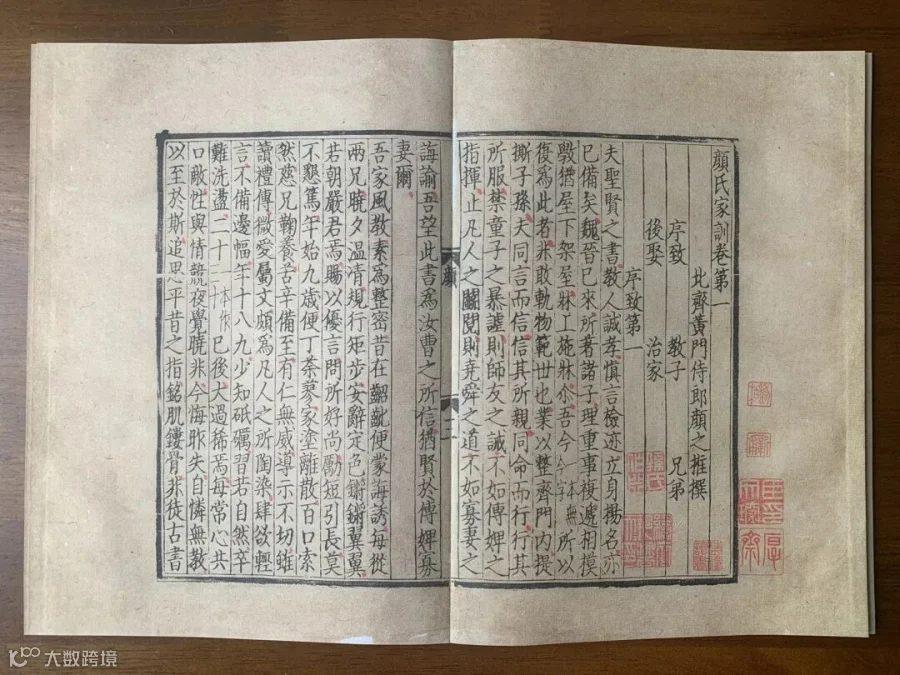 顔氏家訓卷第一
北齊黃門侍郎顔之推撰
序致 教子 兄弟
後娶 治家
序致第一
夫聖賢之書教人誠孝慎言檢迹立身揚名亦
已備矣魏晉已來所著諸子理重事複遞相模
斆猶屋下架屋牀上施牀尒吾今一本無今字所以
復爲此者非敢軌物範世也業以整齊門内提
撕子孫夫同言而信信其所親同命而行行其
所服禁童子之暴謔則師友之誡不如傅婢之
指揮止凡人之鬭鬩則堯舜之道不如寡妻之
顔
二
誨諭吾望此書爲汝曹之所信猶賢於傅婢寡
妻爾
吾家風教素爲整密昔在齠齔便蒙誨誘每從
兩兄曉夕温凊規行矩步安辭定色鏘鏘翼翼
若朝嚴君焉賜以優言問所好尚勵短引長莫
不懇篤年始九歲便丁荼蓼家塗離散百口索
然慈兄鞠養苦辛備至有仁無威導示不切雖
讀禮傳微愛屬文頗爲凡人之所陶染肆欲輕
言不備邊幅年十八九少知砥礪習若自然卒
難洗盪二十一本作三十已後大過稀焉每常心共
口敵性與情競夜覺曉非今悔昨失自憐無教
以至於斯追思平昔之指銘肌鏤骨非徒古書
大数跨境